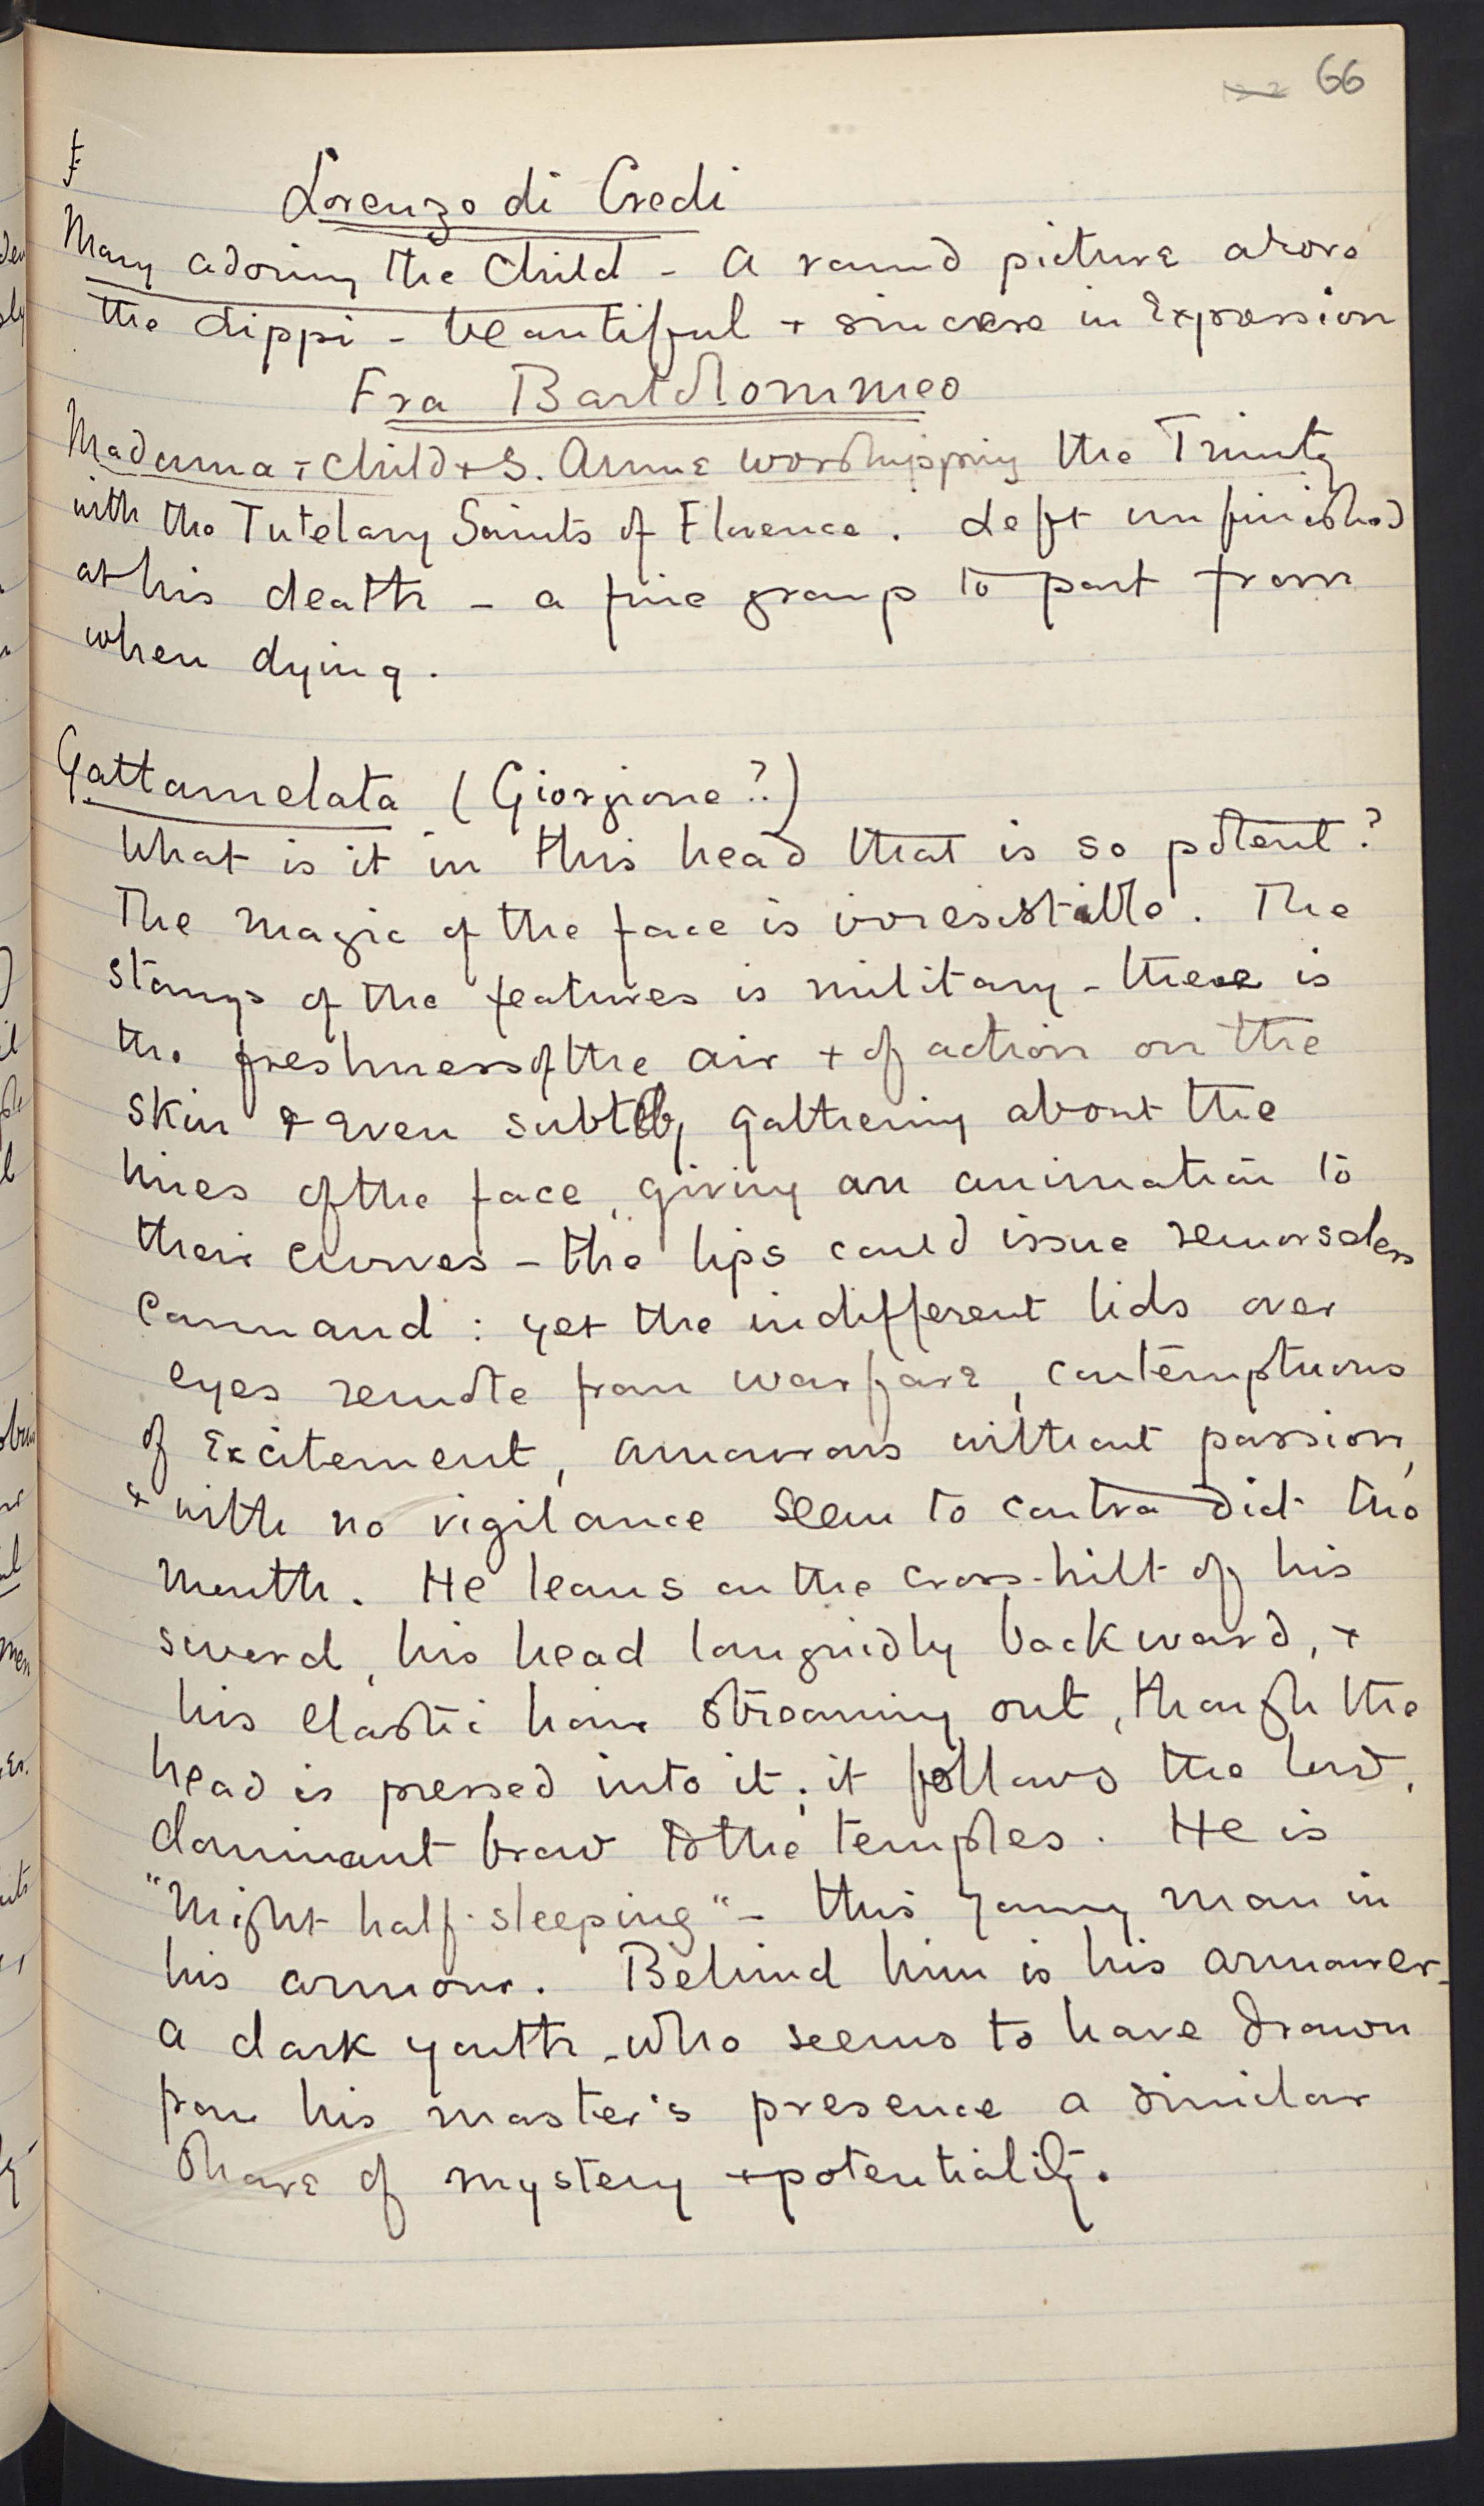 66
Lorenzo di Credi
Mary adoring the Child - A round picture above
the Lippi - beautiful + sincere in Expression
Fra Bartolommeo
Madonna + Child + S. Anne worshipping the Trinity
with the Tutelary Saints of Florence. Left unfinished
at his death - a fine group to part from
when dying.
Gattamelata (Giorgione?)
What is it in this head that is so potent?
The magic of the face is irresistible. The
stamp of the features is military - there is
the freshness of the air + of action on the
skin & even subtly gathering about the
lines of the face, giving an animation to
their curves - the lips could issue remorseless
command : yet the indifferent lids over
eyes remote from warfare, contemptuous
of Excitement, amorous without passion,
& with no vigilance seem to contradict the
mouth. He leans on the cross-hilt of his
sword, his head languidly backward, +
his elastic hair streaming out, though the
head is pressed into it; it follows the low,
dominant brow to the temples. He is
"Might half-sleeping" - this young man in
his armour. Behind him is his armourer -
a dark youth - who seems to have drawn
from his master's presence a similar
share of mystery + potentiality.